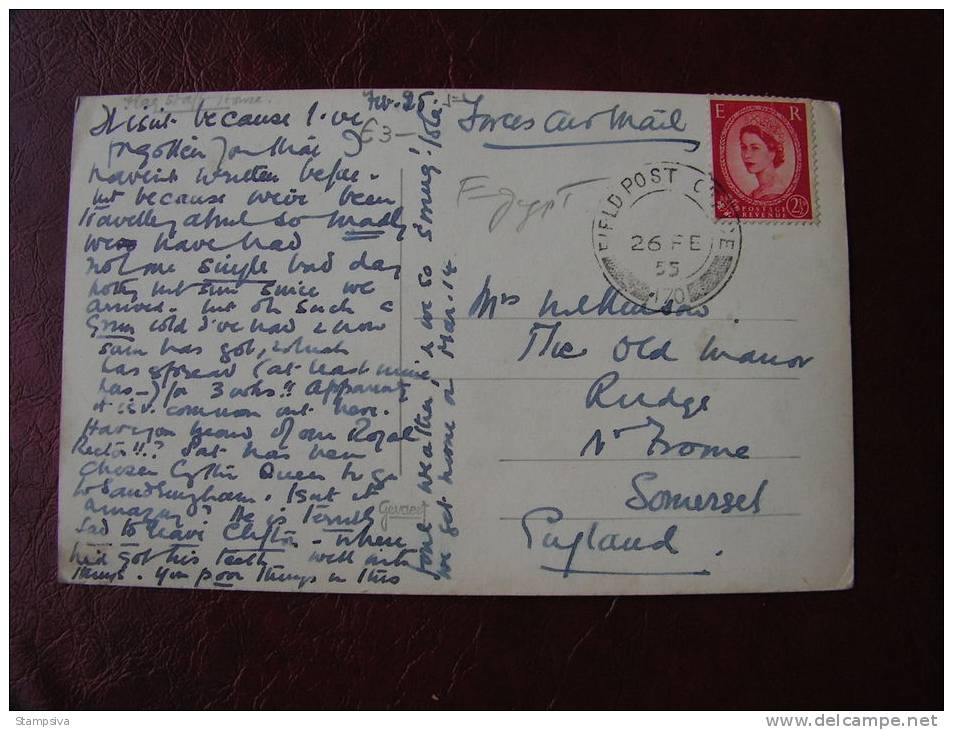 Flag Staff House.
Feb. 25.
It isn't because I've
forgotten you that I
haven't written before -
but because we've been
travelling about so madly
We have had
not one single bad day
nothing but sun since we
arrived. but oh such a
cold I've had & now
Sam has got, which
has spread (at least mine
has -) for 3 wks!! Apparently
it is v. common out here.
Have you heard of our Royal
Rector!!? Pat has been
chosen by the Queen to go
to Sandringham. Isn't it
amazing? He is terribly
sad to leave Clifton - where
he'd got his teeth well into
things. You poor things in this
foul weather, & we so smug! Isla
we get home on Mar. 14
£3-
Forces Air Mail
Egypt
E R
POSTAGE
REVENUE
2½D
FIELD POST OFFICE
26 FE
55
170
Mrs
The Old Manor
Rudge
Nr Frome
Somerset
England.
Gevaert
Stampsiva